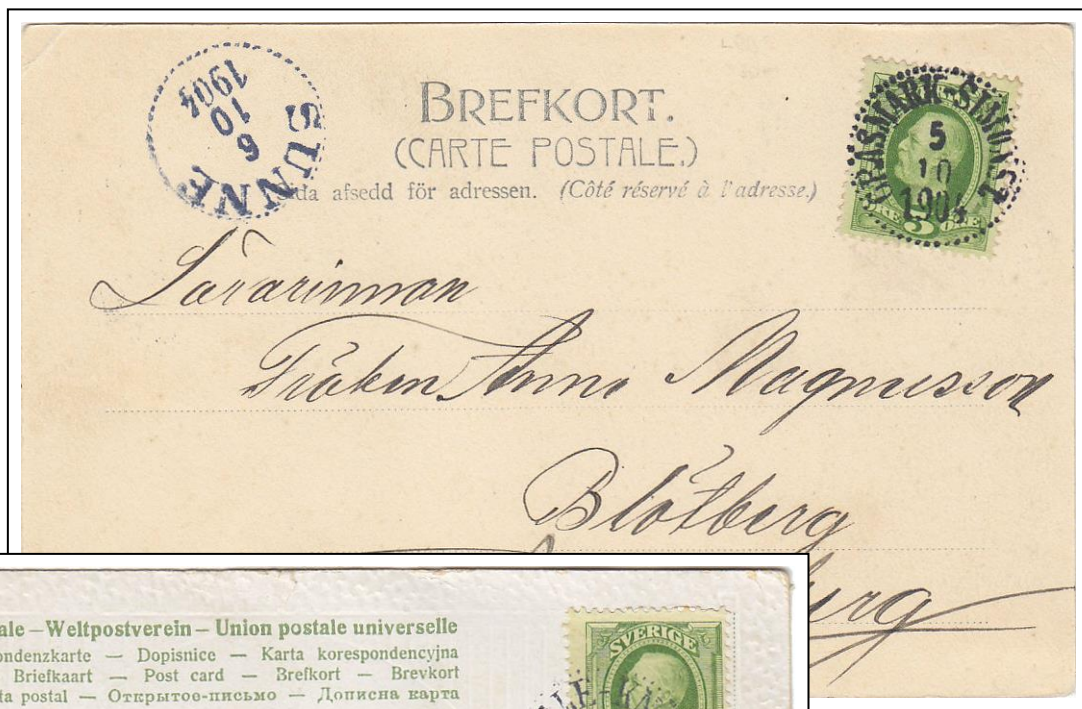 SUNNE
6
10
1904
BREFKORT.
(CARTE POSTALE.)
da afsedd för adressen. (Côté réservé à l'adresse.)
GRÄSMARK-SIMONST
5
10
1904
5 ÖRE
Lärarinnan
Fröken Anna Magnusson
Blötberg
urg
ale – Weltpostverein – Union postale universelle
ondenzkarte — Dopisnice — Karta korespondencyjna
Briefkaart — Post card — Brefkort — Brevkort
ta postal — Открытое-письмо — Дописна карта
SVERIGE